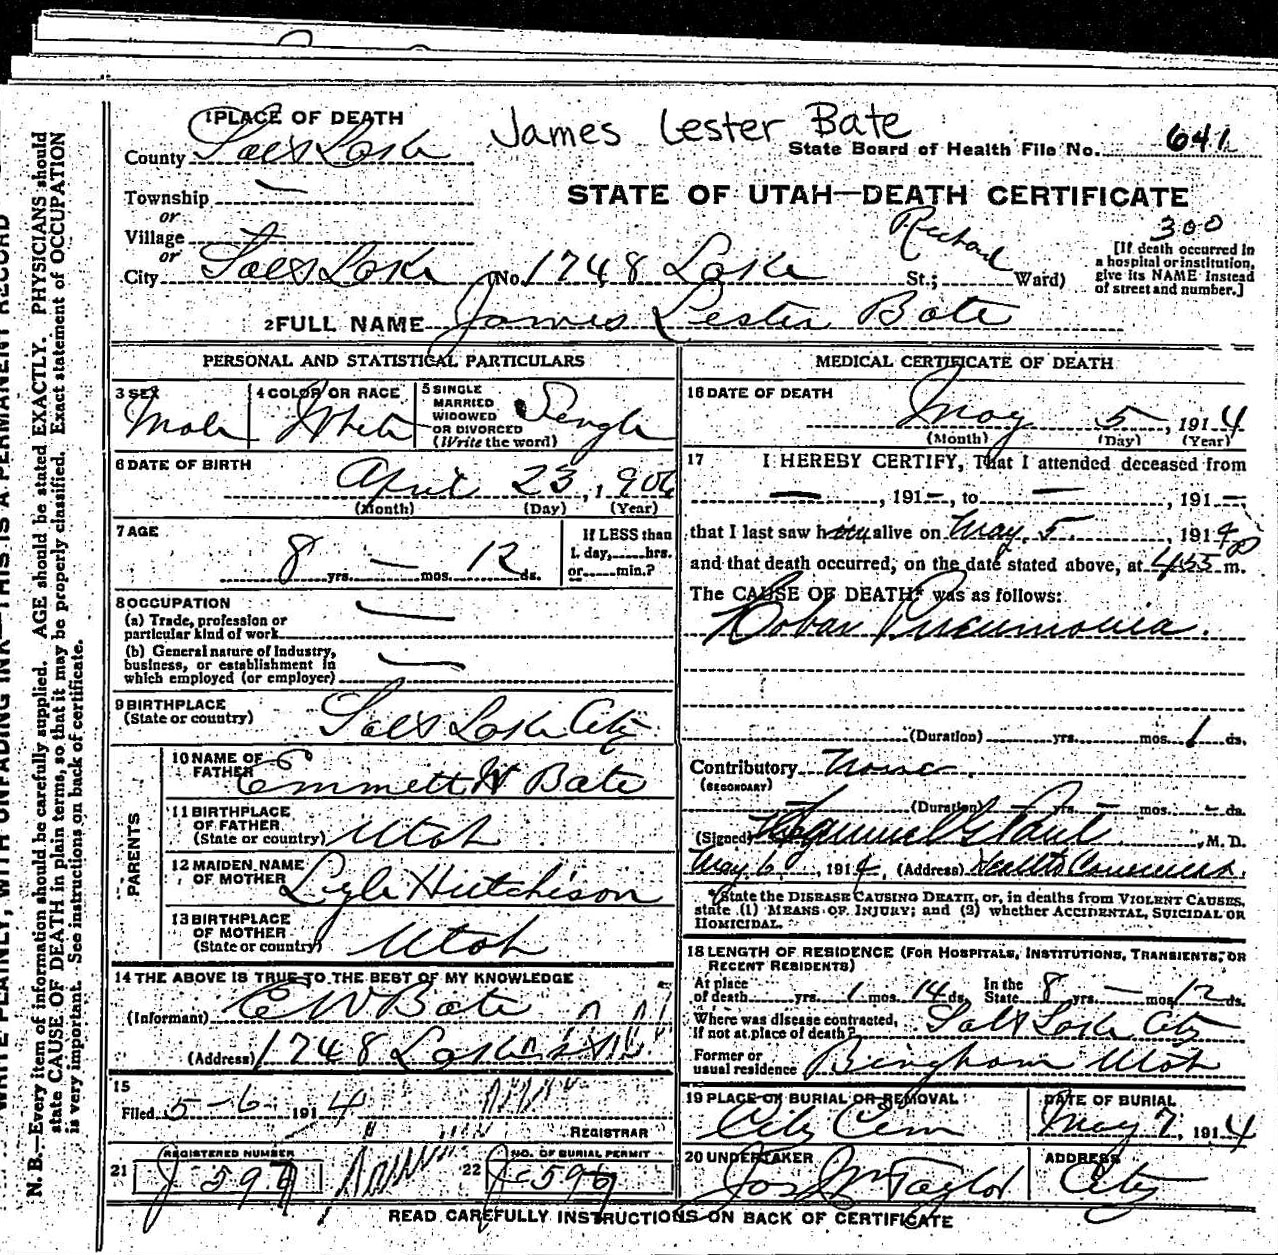 WRITE PLAINLY, WITH UNFADING INK—THIS IS A PERMANENT RECORD
N. B.—Every item of information should be carefully supplied. AGE should be stated EXACTLY. PHYSICIANS should
state CAUSE OF DEATH in plain terms, so that it may be properly classified. Exact statement of OCCUPATION
is very important. See instructions on back of certificate.
1 PLACE OF DEATH
James Lester Bate
County Salt Lake
State Board of Health File No. 641
Township —
STATE OF UTAH—DEATH CERTIFICATE
or
Village
or
City Salt Lake (No. 1748 Lake St.; Ward)
300
[If death occurred in
a hospital or institution,
give its NAME instead
of street and number.]
2 FULL NAME James Lester Bate
PERSONAL AND STATISTICAL PARTICULARS
3 SEX Male
4 COLOR OR RACE White
5 SINGLE
MARRIED
WIDOWED
OR DIVORCED
(Write the word)
Single
6 DATE OF BIRTH
April 23, 1906
(Month) (Day) (Year)
7 AGE
8 yrs. — mos. 12 ds.
If LESS than
1 day, hrs.
or min.?
8 OCCUPATION
(a) Trade, profession or
particular kind of work —
(b) General nature of Industry,
business, or establishment in
which employed (or employer) —
9 BIRTHPLACE
(State or country) Salt Lake City
PARENTS
10 NAME OF
FATHER Emmett W Bate
11 BIRTHPLACE
OF FATHER
(State or country) Utah
12 MAIDEN NAME
OF MOTHER Lyle Hutchison
13 BIRTHPLACE
OF MOTHER
(State or country) Utah
14 THE ABOVE IS TRUE TO THE BEST OF MY KNOWLEDGE
(Informant) E W Bate
(Address) 1748 Lake
15
Filed 5-6- 1914
REGISTRAR
21 REGISTERED NUMBER
J 597
22 NO. OF BURIAL PERMIT
J-597
MEDICAL CERTIFICATE OF DEATH
16 DATE OF DEATH
May 5, 1914
(Month) (Day) (Year)
17 I HEREBY CERTIFY, That I attended deceased from
—, 191—, to —, 191—,
that I last saw him alive on May 5, 1914
and that death occurred, on the date stated above, at 4:55 P m.
The CAUSE OF DEATH* was as follows:
Lobar Pneumonia.
(Duration) yrs. mos. 1 ds.
Contributory None.
(SECONDARY)
(Duration) — yrs. — mos. — ds.
(Signed) , M. D.
May 6, 1914, (Address)
*State the DISEASE CAUSING DEATH, or, in deaths from VIOLENT CAUSES,
state (1) MEANS OF INJURY; and (2) whether ACCIDENTAL, SUICIDAL OR
HOMICIDAL.
18 LENGTH OF RESIDENCE (FOR HOSPITALS, INSTITUTIONS, TRANSIENTS, OR
RECENT RESIDENTS)
At place
of death yrs. 1 mos. 14 ds.
In the
State 8 yrs. — mos. 12 ds.
Where was disease contracted,
if not at place of death? Salt Lake City
Former or
usual residence Bingham Utah
19 PLACE OF BURIAL OR REMOVAL
City Cem
DATE OF BURIAL
May 7, 1914
20 UNDERTAKER
Jos Wm Taylor
ADDRESS
City
READ CAREFULLY INSTRUCTIONS ON BACK OF CERTIFICATE